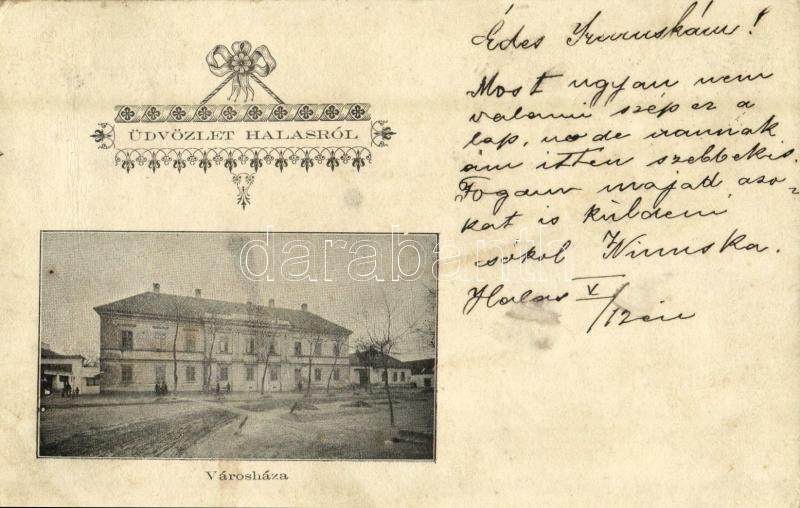 ÜDVÖZLET HALASRÓL
Városháza
Édes Irmuskám!
Most ugyan nem
valami szép ez a
lap, no de vannak
ám itten szebbek is.
Fogom majd azo-
kat is küldeni
csókol Nimuska.
Halas V/12én
darabanth